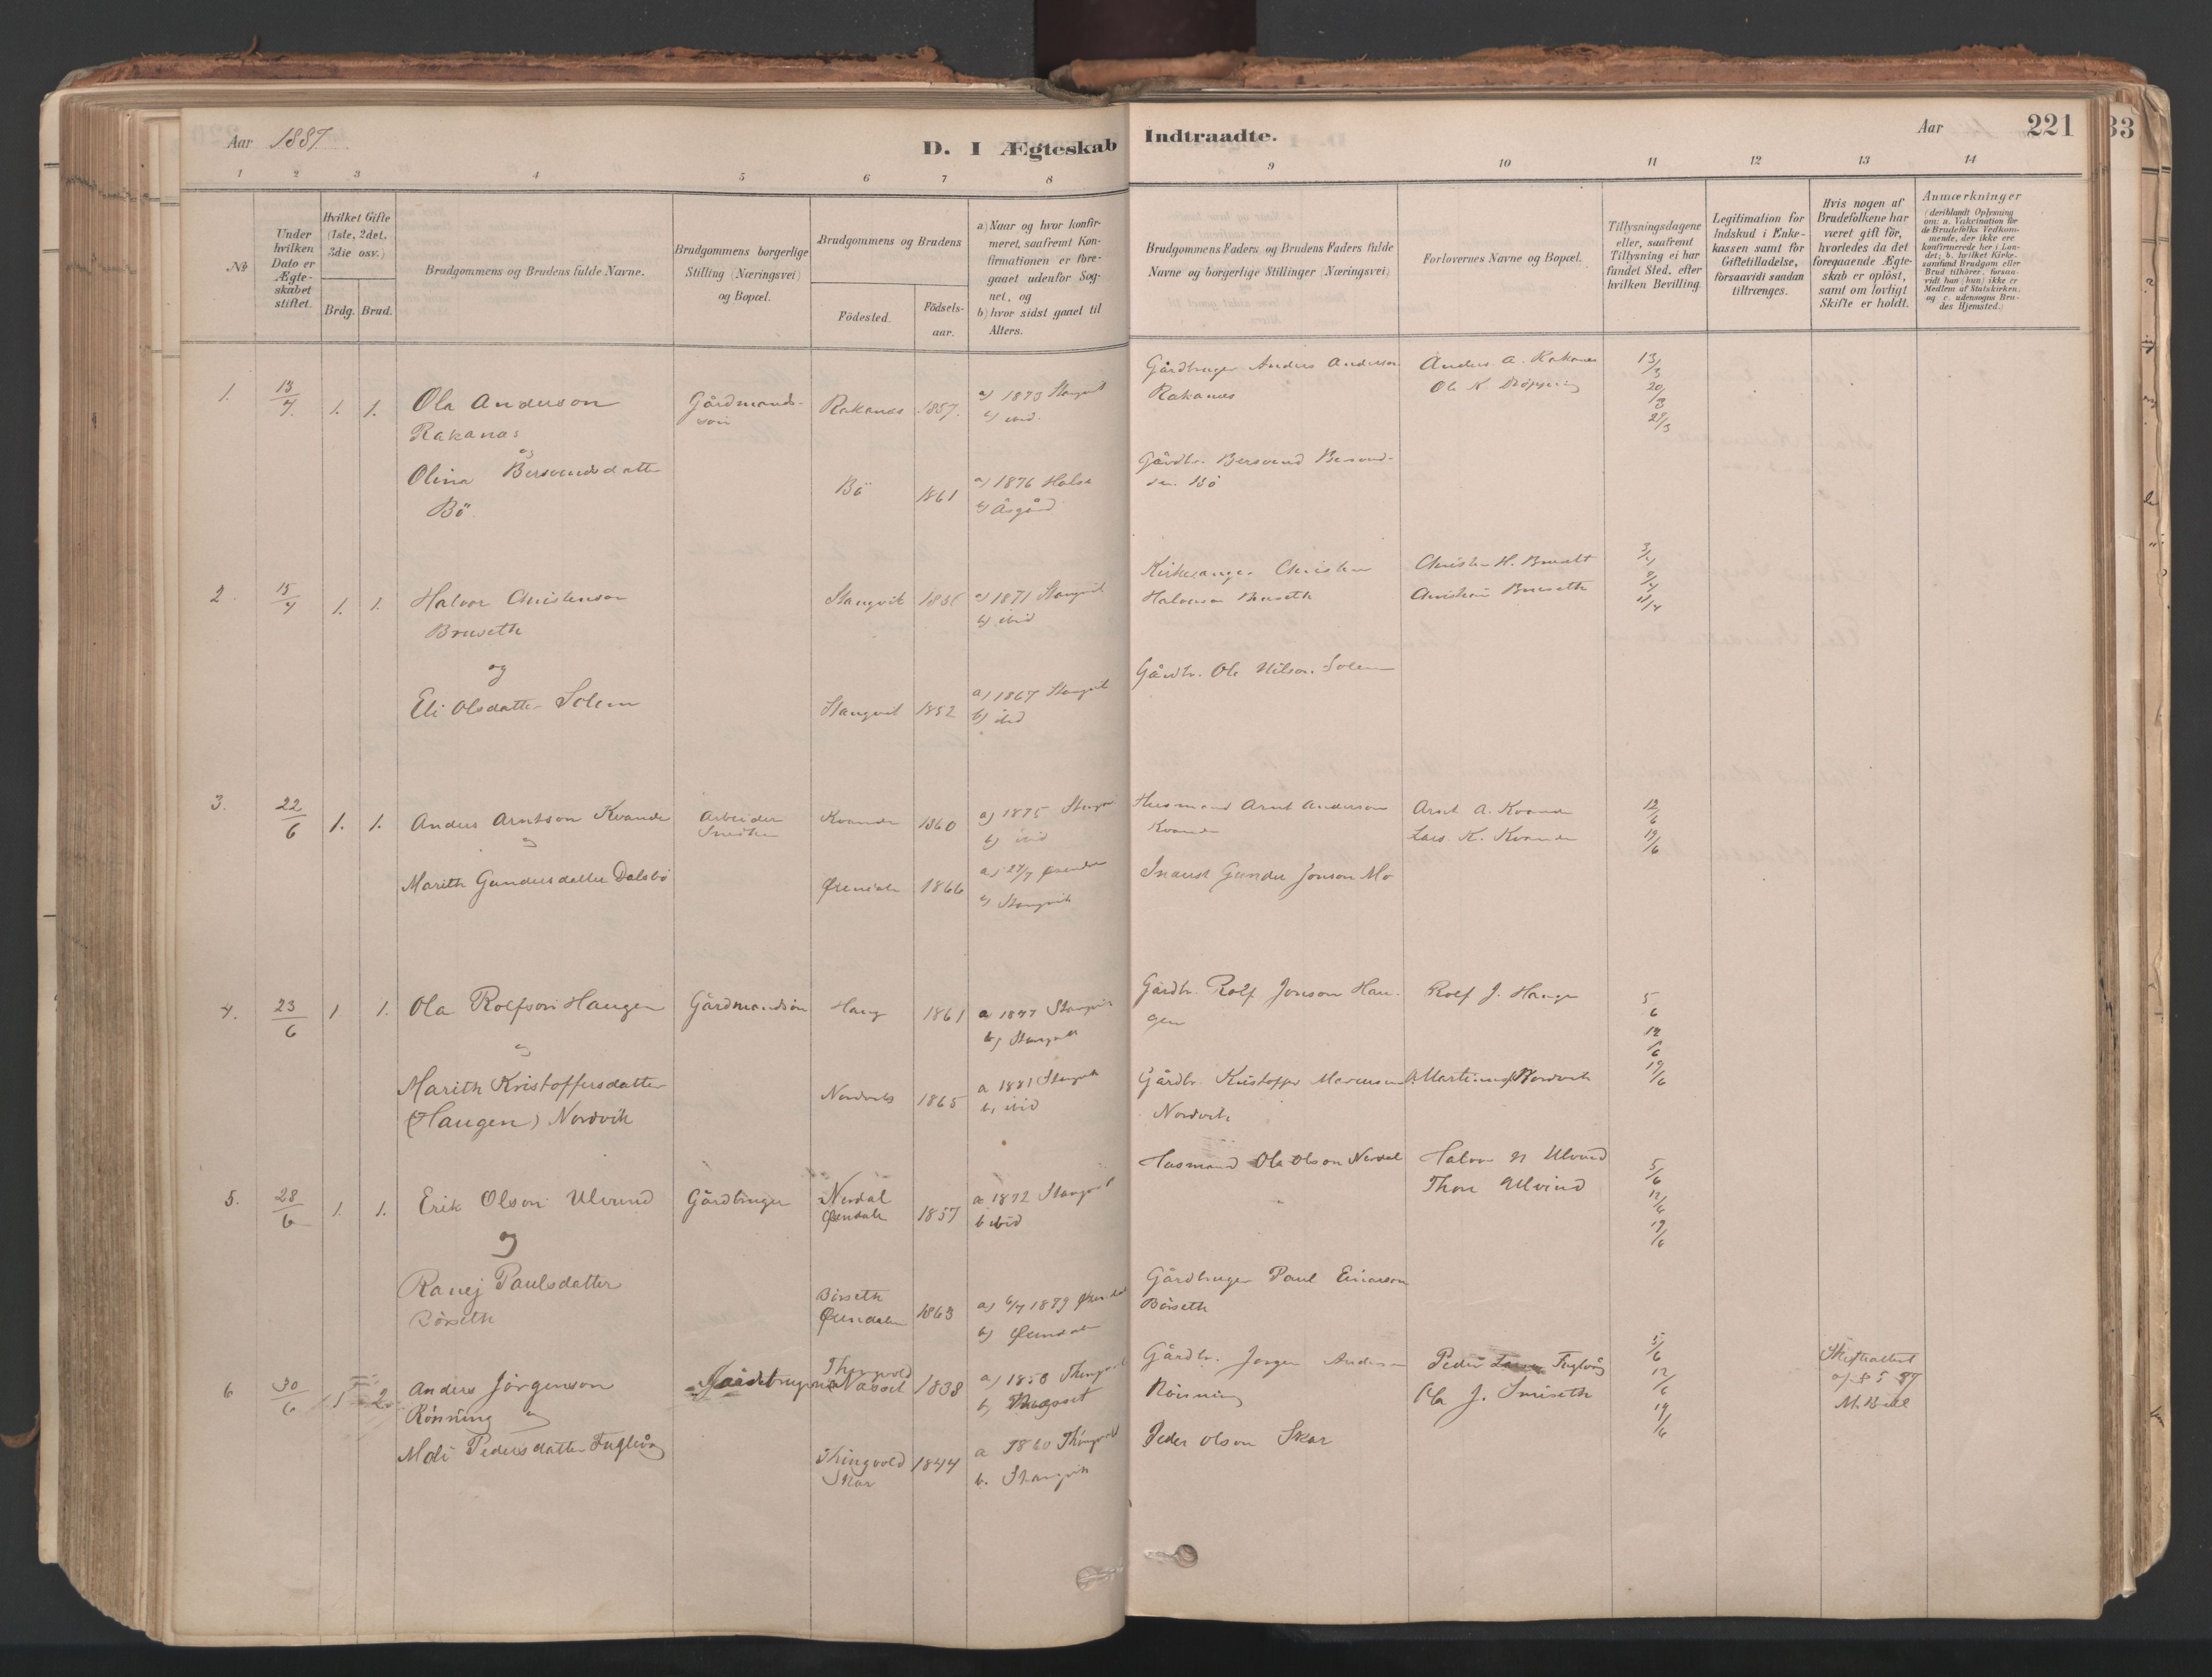 Aar 1887
D. I Ægteskab
Indtraadte.
Aar
221
33
1 2 3 4 5 6 7 8
9 10 11 12 13 14
No
Under hvilken Dato er Ægteskabet stiftet.
Hvilket Gifte (1ste, 2det, 3die osv.)
Brdg. Brud.
Brudgommens og Brudens fulde Navne.
Brudgommens borgerlige Stilling (Næringsvei) og Bopæl.
Brudgommens og Brudens
Födested.
Födselsaar.
a) Naar og hvor konfirmeret, saafremt Konfirmationen er foregaaet udenfor Sognet, og
b) hvor sidst gaaet til Alters.
Brudgommens Faders og Brudens Faders fulde Navne og borgerlige Stillinger (Næringsvei)
Forlovernes Navne og Bopæl.
Tillysningsdagene eller, saafremt Tillysning ei har fundet Sted, efter hvilken Bevilling.
Legitimation for Indskud i Enkekassen samt for Giftetilladelse, forsaavidt saadan tiltrænges.
Hvis nogen af Brudefolkene har været gift för, hvorledes da det foregaaende Ægteskab er oplöst, samt om lovligt Skifte er holdt.
Anmærkninger
(deriblandt Oplysning om: a. Vakcination for de Brudefolks Vedkommende, der ikke ere konfirmerede her i Landet; b. hvilket Kirkesamfund Brudgom eller Brud tilhörer, forsaavidt han (hun) ikke er Medlem af Statskirken, og c. udensogns Brudes Hjemsted.)
1. 13/4 1. 1. Ola Anderson
Rakanæs
og
Gårdmands-
søn
Rakanæs 1857.
a) 1873 Stangvik
b) ibid.
Gårdbruger Anders Anderson
Rakanæs
Anders A. Rakanes
Ole K.
13/3
20/3
27/3
Olina Bersvendsdatter
Bö.
Bö 1861
a) 1876 Halse
b) Åsgård
Gårdbr. Bersvend Bersvend-
sen Bö
2. 15/4 1. 1. Halvor Christenson
Bruseth
og
Stangvik
a) 1871 Stangvik
b) ibid
Kirkesanger Christen
Halvorsen Bruseth
Christen H. Bruseth
Bruseth
3/4
11/4
Eli Olsdatter Solem
Stangvik 1852
a) 1867 Stangvik
b) ibid
Gårdbr. Ole Nilson Solem
3. 22/6 1. 1. Anders Arntson Kvande
og
Arbeider
Kvande 1860
a) 1875 Stangvik
b) ibid
Husmand Arnt Anderson
Kvande
Arnt A. Kvande
Lars K. Kvande
12/6
19/6
Marith Gundersdatter Dalsbö
Øxendalen 1866
b) Stangvik
Inderst Gunder Jonson Mo
4. 23/6 1 1. Ola Rolfson Haugen
og
Gårdmandsön
Haug 1861
a 1877 Stangvik
b) Stangvik
Gårdbr. Rolf Jonson Hau-
gen
Rolf J. Haugen
5/6
12/6
19/6
Marith Kristoffersdatter
(Haugen) Nordvik
Nordvik 1865
a 1881 Stangvik
b) ibid
Gårdbr. Kristoffer
Nordvik
Nordvik
5. 28/6 1. 1. Erik Olson Ulvund
og
Gårdbruger
Nerdal
Øxendalen 1857
a 1872 Stangvik
b ibid
Husmand Ole Olson Nerdal
Halvor N Ulvund
Thore Ulvund
5/6
12/6
19/6
Ranej Paulsdatter
Börseth
Börseth
Øxendalen 1863
a) 6/7 1879 Øxendal
b) Øxendalen
Gårdbruger Paul Einarson
Börseth
6 30/6 1 2 Anders Jörgenson
Rönning og
Gårdbruger
Thingvold
Nasset 1838
a) 1853 Thingvold
b) Thingvold
Gårdbr. Jørgen Anderson
Rönning
Peder Fuglvåg
Ola J. Smiseth
5/6
12/6
19/6
Skifteattest
M. Buil
Moli Pedersdatter Fuglvåg
Thingvold
Skar 1844
a 1860 Thingvold
b. Stangvik
Peder Olson Skar